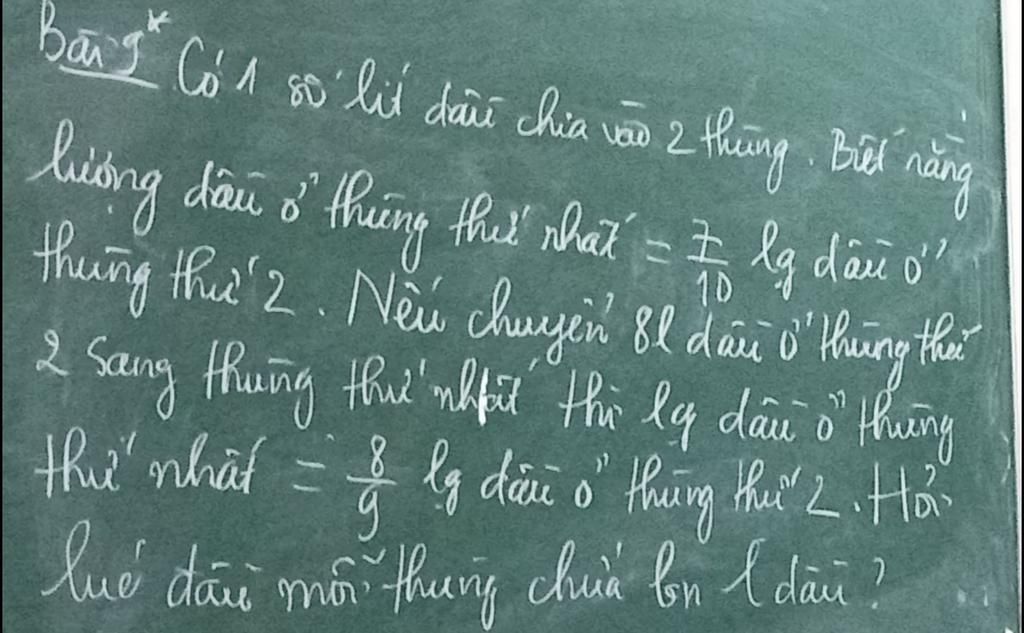 Bài 9* Có 1 số lít dầu chia vào 2 thùng. Biết rằng
lượng dầu ở thùng thứ nhất = 7/10 lg dầu ở
thùng thứ 2. Nếu chuyển 8l dầu ở thùng thứ
2 sang thùng thứ nhất thì lg dầu ở thùng
thứ nhất = 8/9 lg dầu ở thùng thứ 2. Hỏi
lúc đầu mỗi thùng chứa bn l dầu?